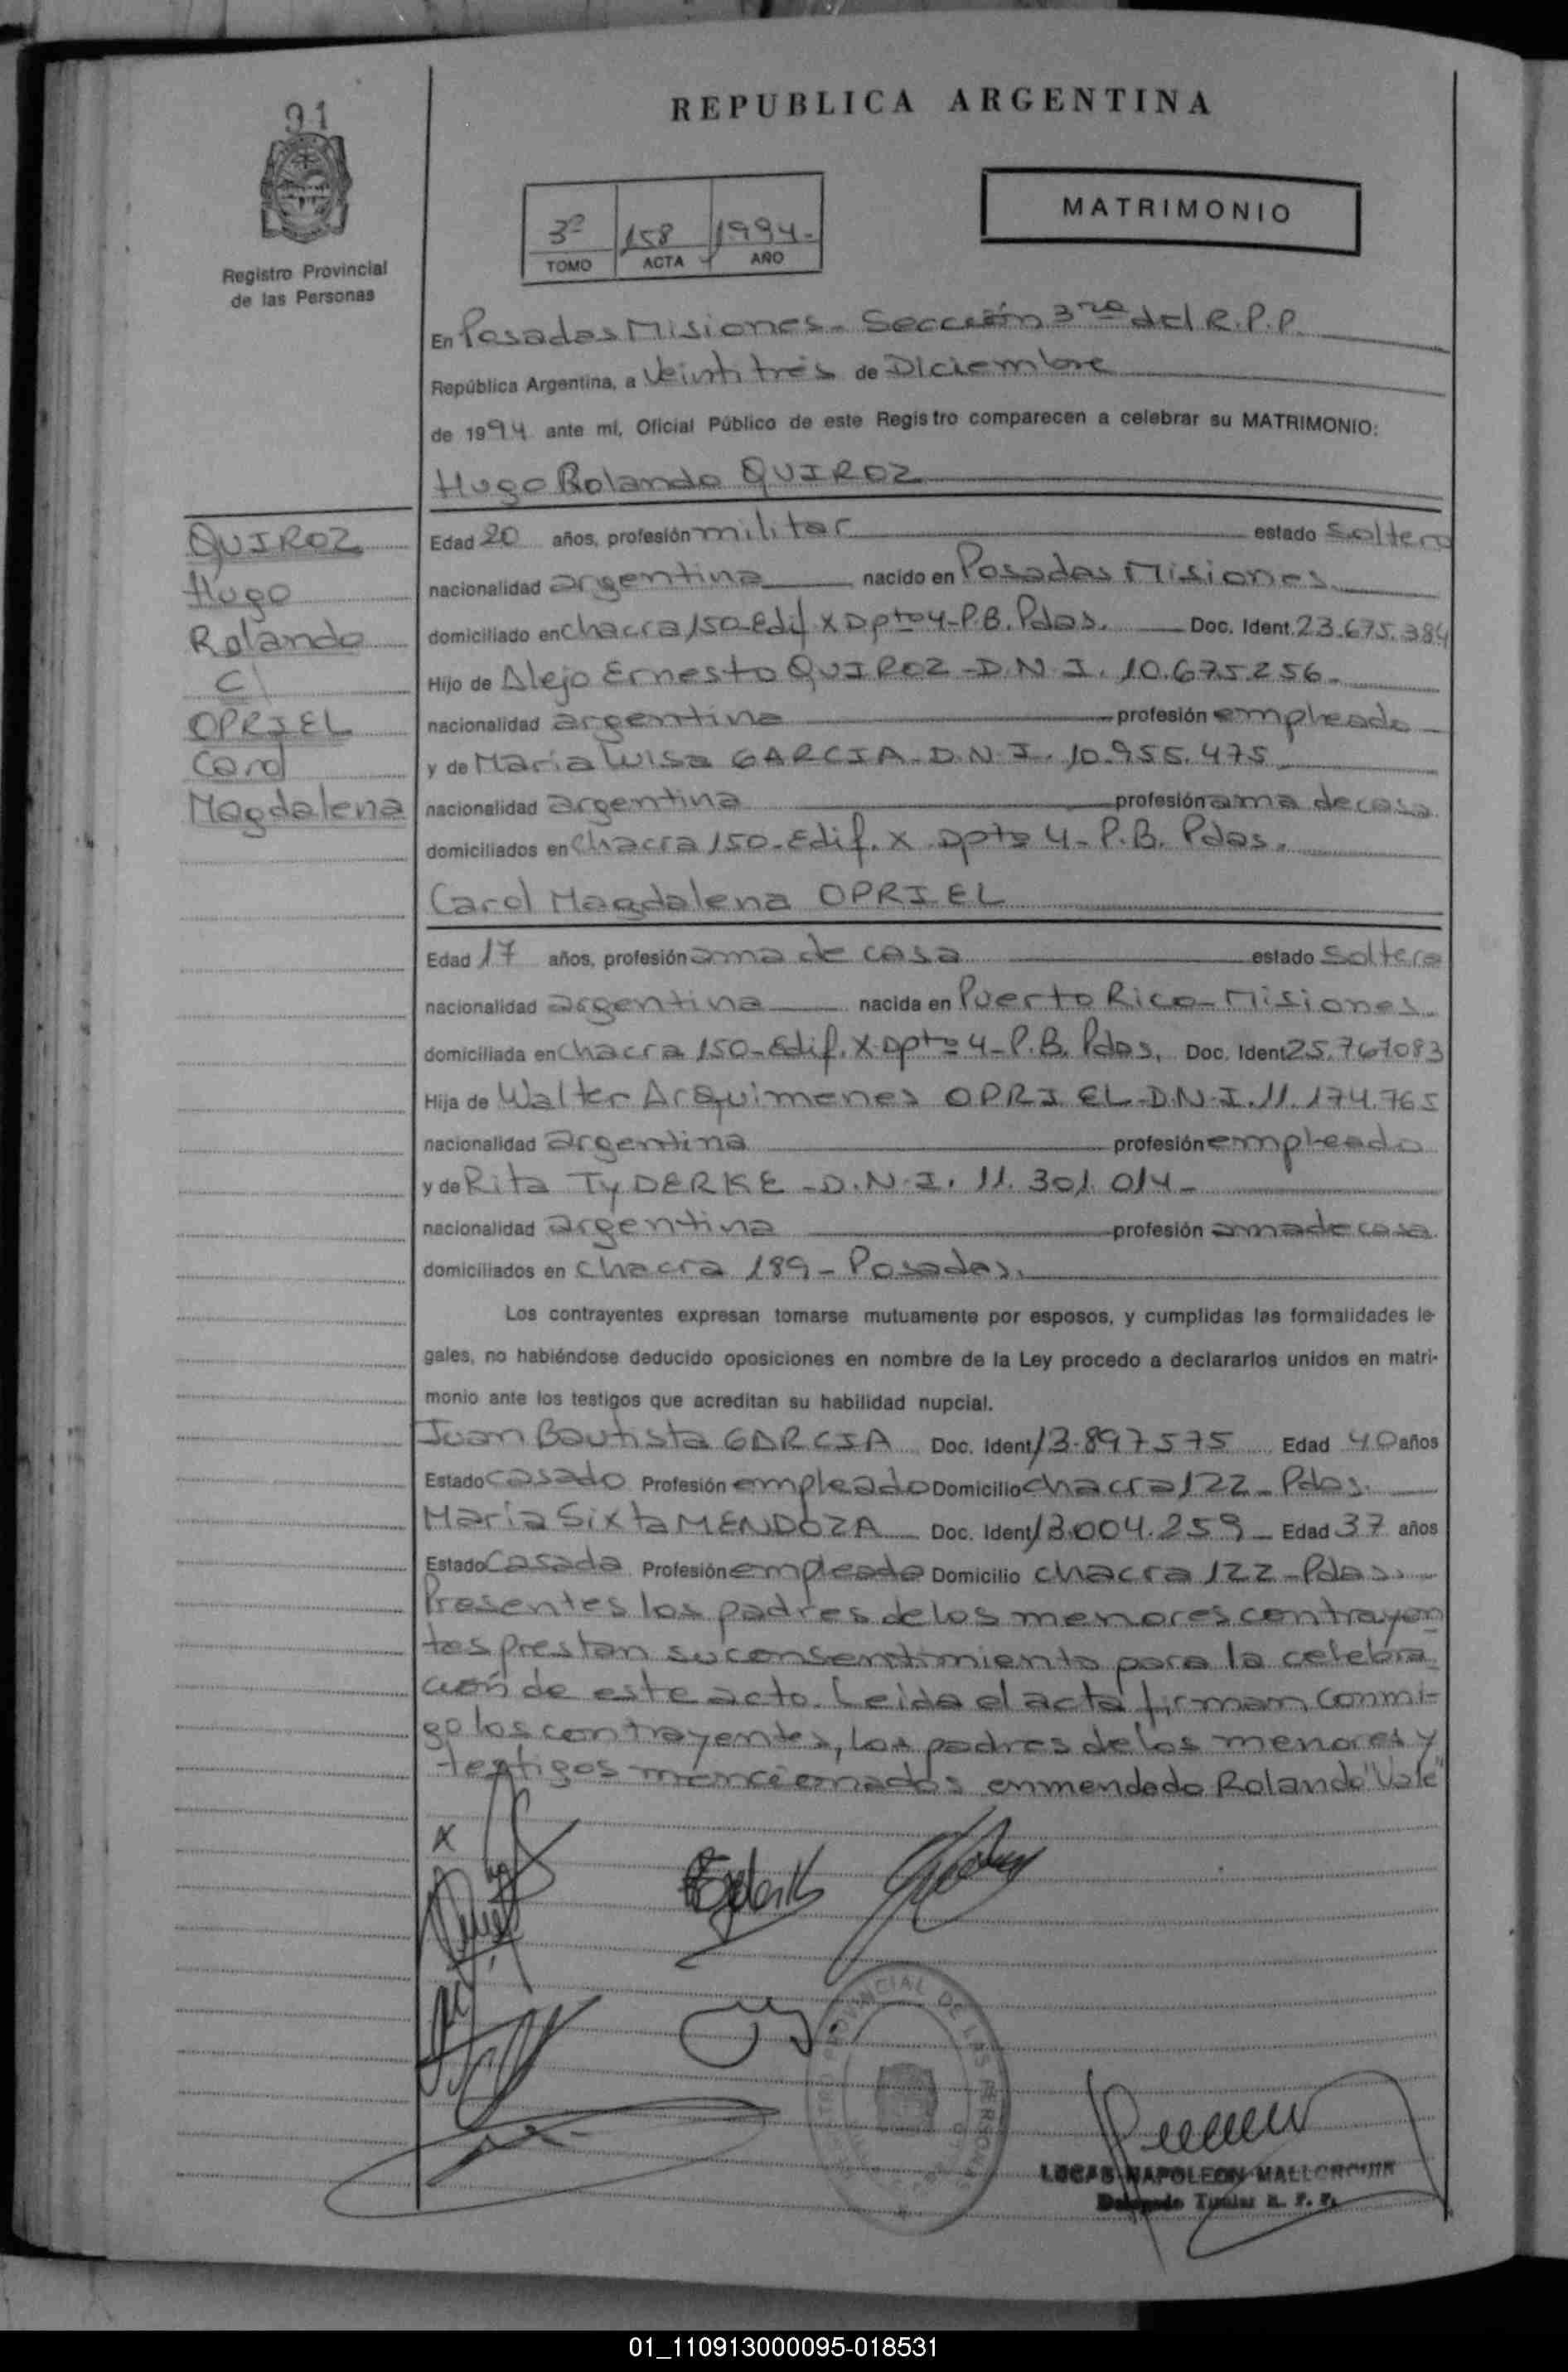 91
REPUBLICA ARGENTINA
MATRIMONIO
3º 158 1994.-
TOMO ACTA AÑO
Registro Provincial
de las Personas
En Posadas Misiones - Sección 3ra del R.P.P.
República Argentina, a Veintitrés de Diciembre
de 1994 ante mí, Oficial Público de este Registro comparecen a celebrar su MATRIMONIO:
Hugo Rolando QUIROZ
QUIROZ
Hugo
Rolando
C/
OPRIEL
Carol
Magdalena
Edad 20 años, profesión militar estado Soltero
nacionalidad argentina nacido en Posadas Misiones
domiciliado en chacra 150-Edif. X Dpto 4-P.B. Pdas. Doc. Ident. 23.675.384
Hijo de Alejo Ernesto QUIROZ - D.N.I. 10.675.256.
nacionalidad argentina profesión empleado
y de María Luisa GARCIA - D.N.I. 10.955.475
nacionalidad argentina profesión ama de casa
domiciliados en chacra 150-Edif. X Dpto 4-P.B. Pdas.
Carol Magdalena OPRIEL
Edad 17 años, profesión ama de casa estado Soltera
nacionalidad argentina nacida en Puerto Rico-Misiones
domiciliada en chacra 150-Edif. X Dpto 4-P.B. Pdas. Doc. Ident 25.767083
Hija de Walter Arquimenes OPRIEL - D.N.I. 11.174.765
nacionalidad argentina profesión empleado
y de Rita TyDERKE - D.N.I. 11.301.014-
nacionalidad argentina profesión ama de casa
domiciliados en chacra 189 - Posadas.
Los contrayentes expresan tomarse mutuamente por esposos, y cumplidas las formalidades le-
gales, no habiéndose deducido oposiciones en nombre de la Ley procedo a declararlos unidos en matri-
monio ante los testigos que acreditan su habilidad nupcial.
Juan Bautista GARCIA Doc. Ident 13.897575 Edad 40 años
Estado Casado Profesión empleado Domicilio chacra 122 - Pdas.
María Sixta MENDOZA Doc. Ident 13.004.259 - Edad 37 años
Estado Casada Profesión empleada Domicilio chacra 122 - Pdas.
Presentes los padres de los menores contrayen
tes prestan su consentimiento para la celebra
ción de este acto. Leída el acta firman conmi-
go los contrayentes, los padres de los menores y
testigos mencionados enmendado Rolando "Vale"
X
PROVINCIAL DE LAS PERSONAS
LUCAS NAPOLEON MALLORQUIN
Delegado Titular R. P. P.
01_110913000095-018531